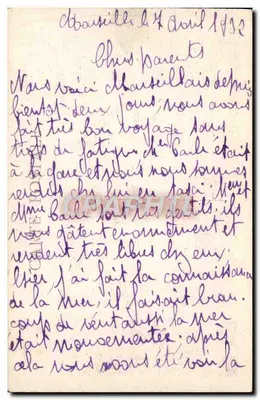 Marseille le 7 Avril 1932
Chers parents
Nous voici Marseillais depuis
bientot deux jours, nous avons
fait très bon voyage sans
trop de fatigue. Mr Baule était
à la gare et nous nous sommes
rendus chez lui en taxi. Mr et
Mme Baule sont très gentils, ils
nous gâtent enormement et
rendent très libres chez eux.
hier j'ai fait la connaissance
de la mer, il faisait beau-
coup de vent aussi la mer
était mouvementée, après
cela nous avons été voir la